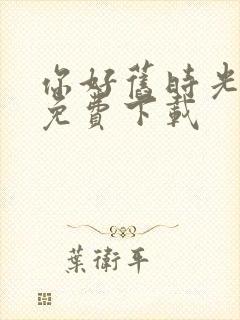 你好舊時光
免費下載
葉衛平